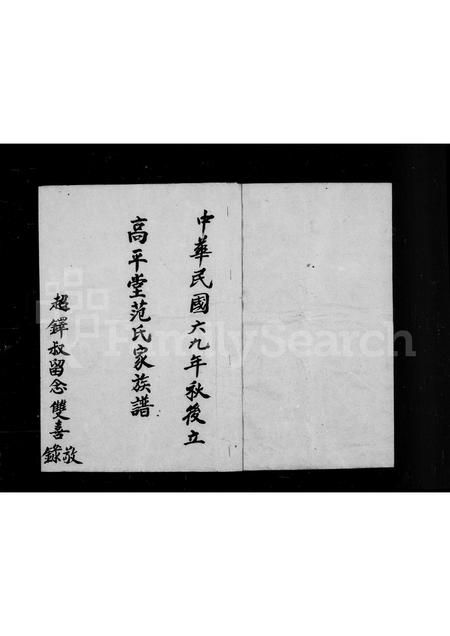 中華民國六九年秋後立
高平堂范氏家族譜
超鐸叔留念雙喜敬錄
FamilySearch